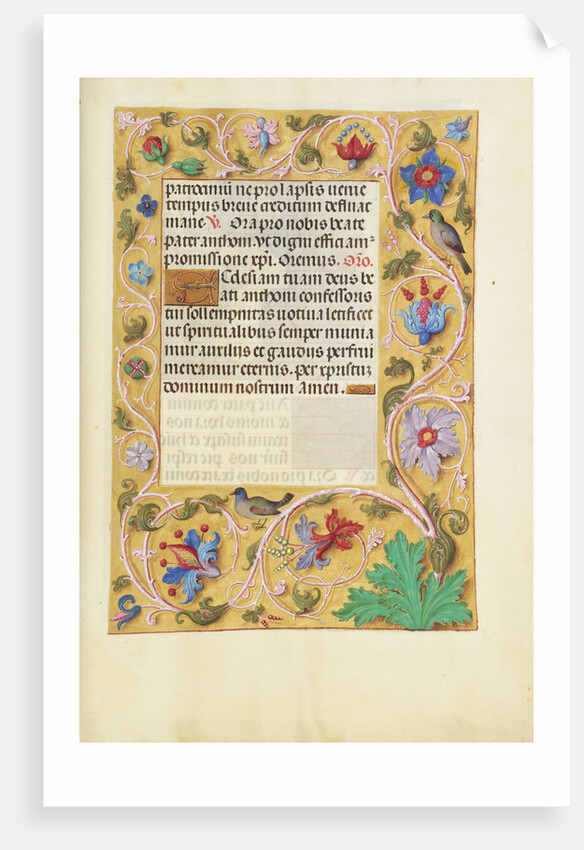 patrociniū ne prolapsis uenie
tempus breue creditum defluae
mane. V. Ora pro nobis beate
pater anthoni. Vt digni efficiam=
promissione xp̄i. Oremus. Orō.
Ecclesiam tuam deus be
ati anthoni confessoris
tui sollempnitas uotiua letificet
ut spiritualibus semper munia
mur auxilijs et gaudijs perfrui
mereamur eternis. per xpristū
dominum nostrum amen.